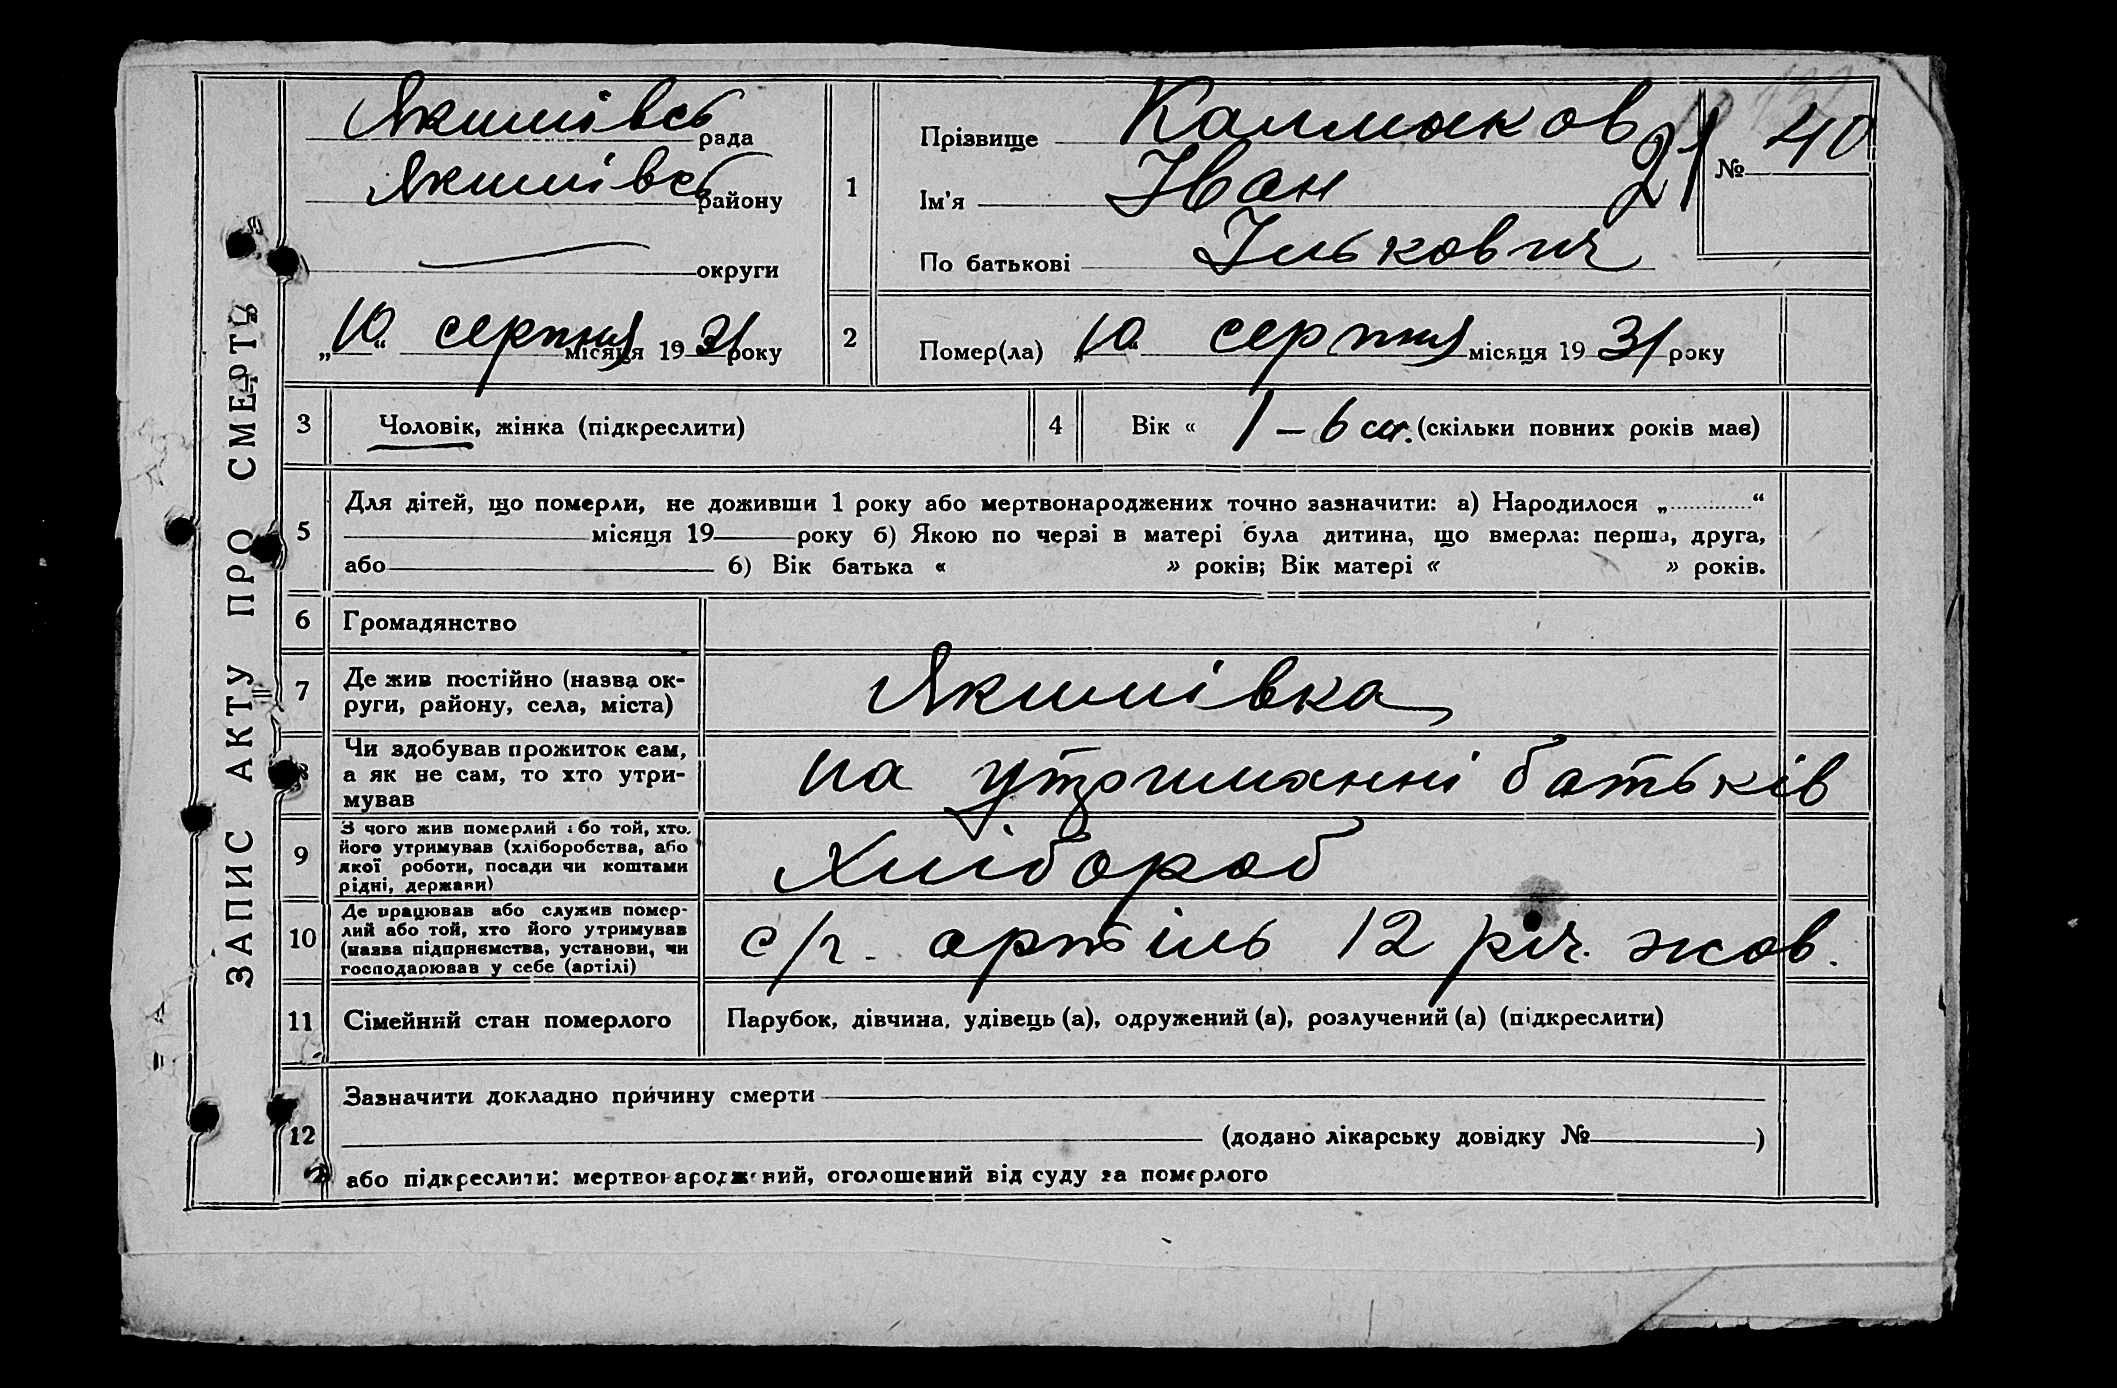 ЗАПИС АКТУ ПРО СМЕРТЬ
Якимівсь рада
Якимівсь району
округи
„10“ серпня місяця 1931 року
1
Прізвище Калмиков
Ім'я Іван
По батькові Ількович
21
№ 40
2
Помер(ла) „10“ серпня місяця 1931 року
3 Чоловік, жінка (підкреслити)
4 Вік « 1 – 6 м. (скільки повних років має)
5
Для дітей, що померли, не доживши 1 року або мертвонароджених точно зазначити: а) Народилося „............“
місяця 19 року б) Якою по черзі в матері була дитина, що вмерла: перша, друга,
або б) Вік батька « » років; Вік матері « » років.
6 Громадянство
7 Де жив постійно (назва ок-
руги, району, села, міста)
Якимівка
Чи здобував прожиток сам,
а як не сам, то хто утри-
мував
на утриманні батьків
9
З чого жив померлий або той, хто
його утримував (хліборобства, або
якої роботи, посади чи коштами
рідні, держави)
Хлібороб
10
Де працював або служив помер-
лий або той, хто його утримував
(назва підприємства, установи, чи
господарював у себе (артілі)
с/г. артіль 12 річ. жов.
11 Сімейний стан померлого
Парубок, дівчина, удівець (а), одружений (а), розлучений (а) (підкреслити)
12
Зазначити докладно причину смерти
(додано лікарську довідку № )
або підкреслити: мертвонароджений, оголошений від суду за померлого